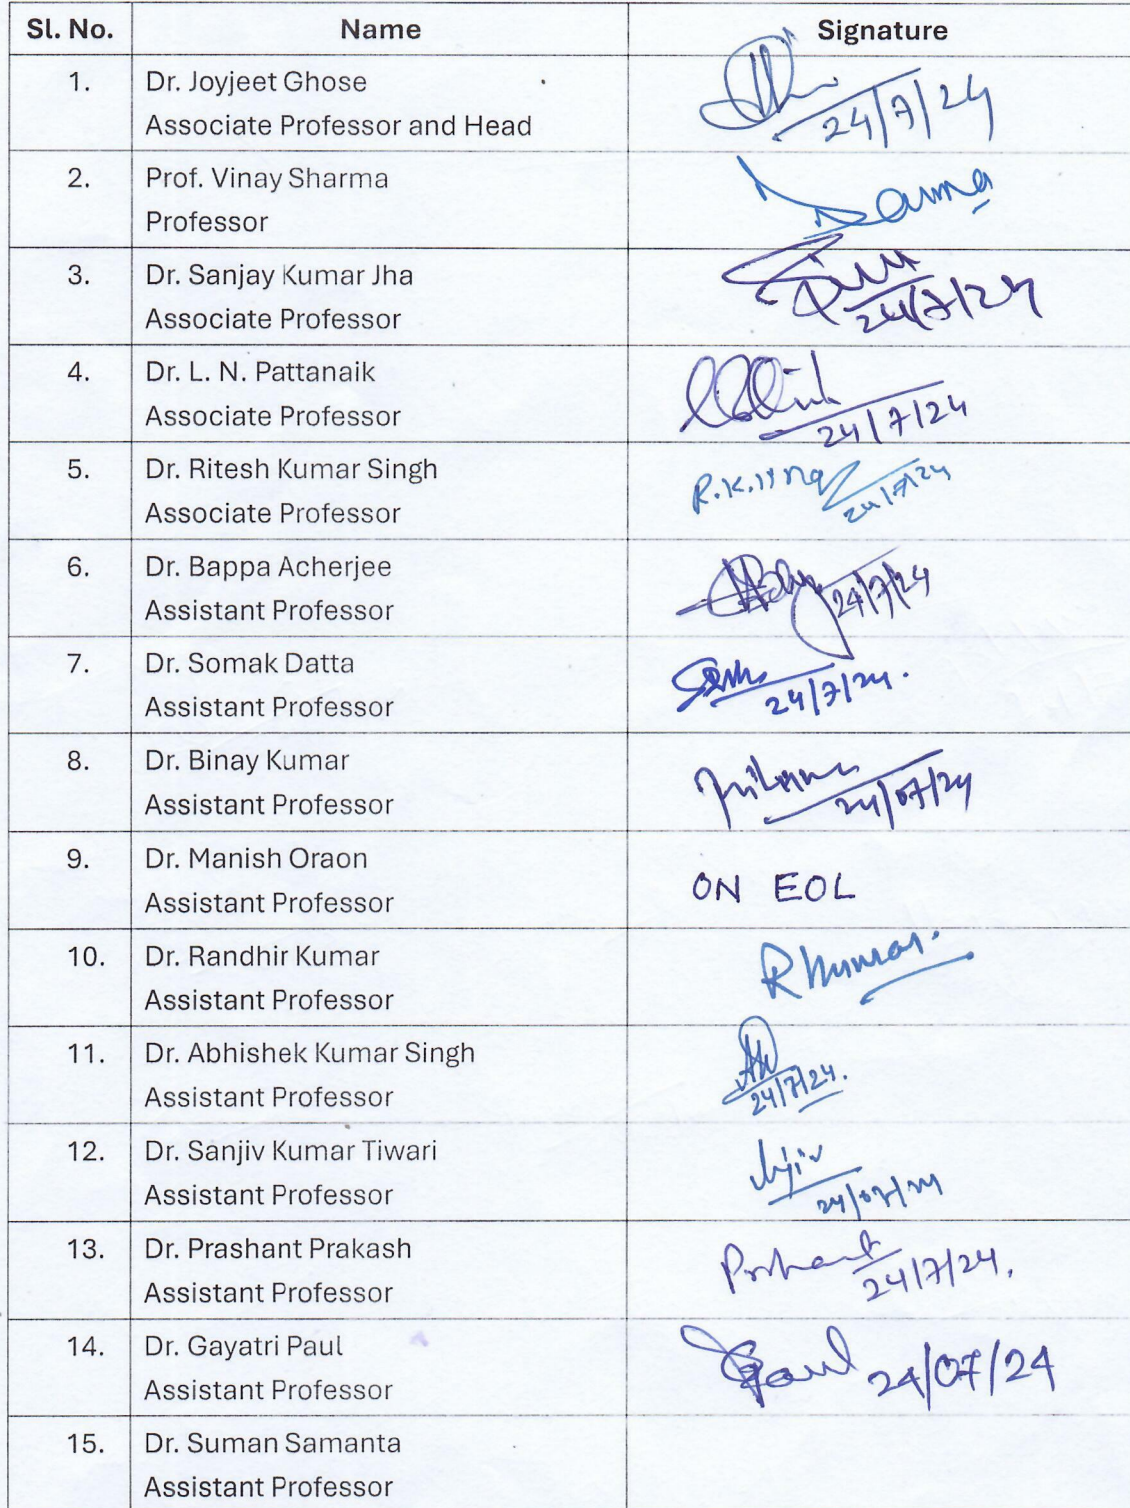 Sl. No. Name Signature
1. Dr. Joyjeet Ghose
Associate Professor and Head
24/7/24
2. Prof. Vinay Sharma
Professor
3. Dr. Sanjay Kumar Jha
Associate Professor
24/7/24
4. Dr. L. N. Pattanaik
Associate Professor
24/7/24
5. Dr. Ritesh Kumar Singh
Associate Professor
24/7/24
6. Dr. Bappa Acherjee
Assistant Professor
24/7/24
7. Dr. Somak Datta
Assistant Professor
24/7/24.
8. Dr. Binay Kumar
Assistant Professor
24/07/24
9. Dr. Manish Oraon
ON EOL
Assistant Professor
10. Dr. Randhir Kumar
RKumar.
Assistant Professor
11. Dr. Abhishek Kumar Singh
24/7/24.
Assistant Professor
12. Dr. Sanjiv Kumar Tiwari
Assistant Professor
24/07/24
13. Dr. Prashant Prakash
Prashant
24/7/24.
Assistant Professor
14. Dr. Gayatri Paul
24/07/24
Assistant Professor
15. Dr. Suman Samanta
Assistant Professor